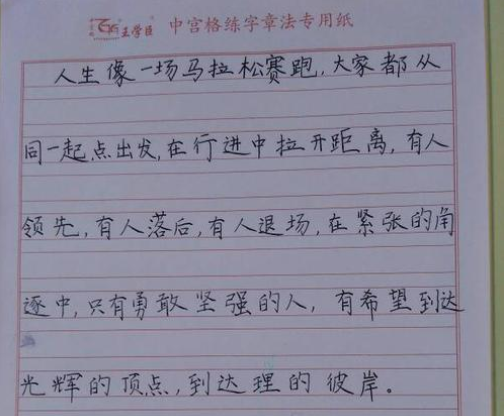 王学臣 中宫格练字章法专用纸
人生像一场马拉松赛跑,大家都从
同一起点出发,在行进中拉开距离,有人
领先,有人落后,有人退场,在紧张的角
逐中,只有勇敢坚强的人,有希望到达
光辉的顶点,到达理的彼岸。